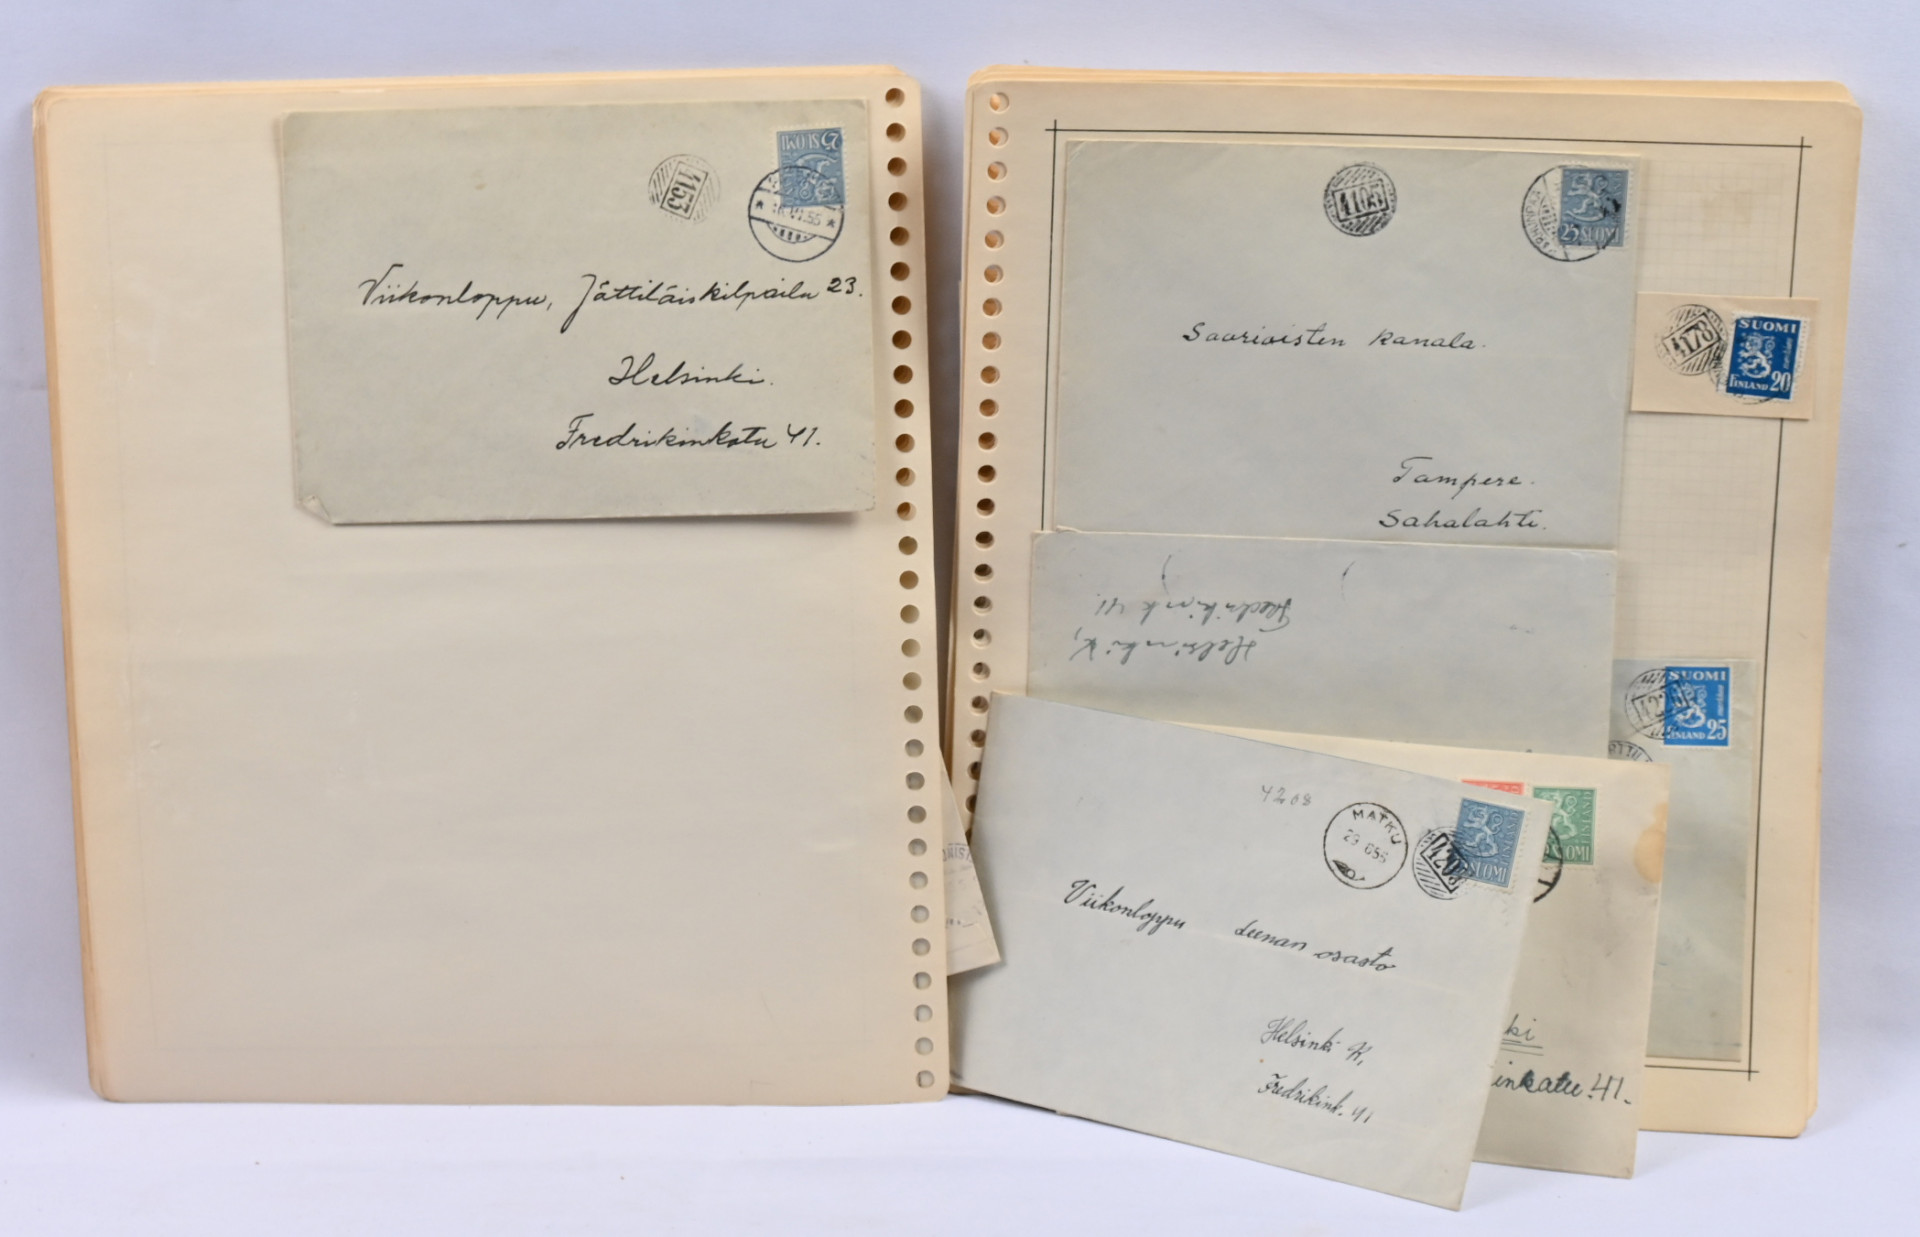 25
SUOMI
4153
Viikonloppu, Jättiläiskilpailu 23.
Helsinki.
Fredrikinkatu 41.
4105
25 SUOMI
Saarioisten kanala.
Tampere.
Sahalahti.
4178
SUOMI
FINLAND 20
Helsinki K,
Fredrikink 41.
SUOMI
FINLAND 25
4208
MATKU
29.6.56
4208
SUOMI FINLAND
SUOMI
Viikonloppu Leenan osasto
Helsinki K,
Fredrikink. 41
ki
inkatu 41.